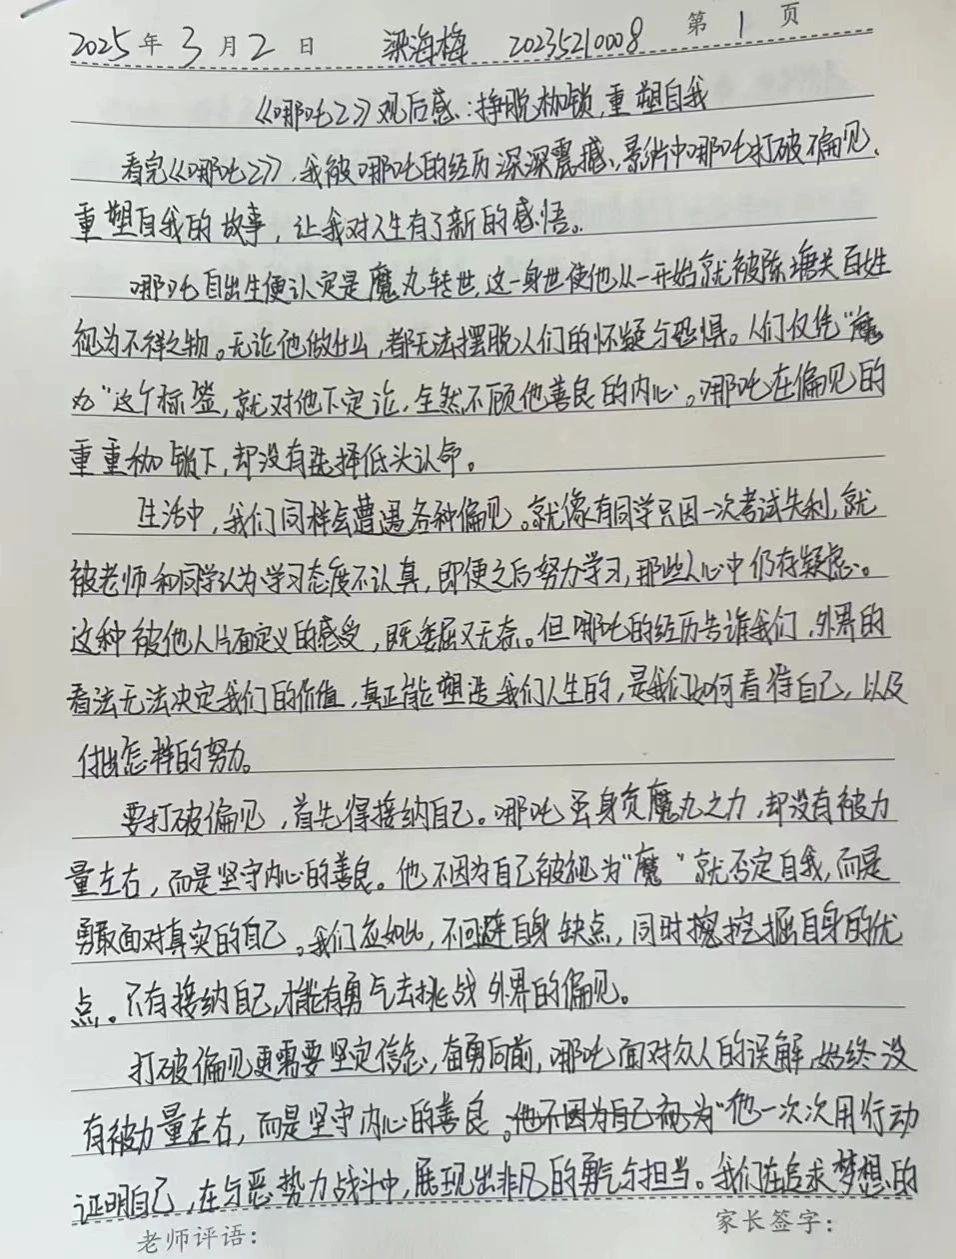 2025年3月2日 梁海梅 20235210008 第1页
《哪吒2》观后感：挣脱枷锁，重塑自我
看完《哪吒2》，我被哪吒的经历深深震撼、影片中哪吒打破偏见、
重塑自我的故事，让我对人生有了新的感悟。
哪吒自出生便认定是魔丸转世，这一身世使他从一开始就被陈塘关百姓
视为不祥之物。无论他做什么，都无法摆脱人们的怀疑与恐惧。人们仅凭“魔
丸”这个标签，就对他下定论，全然不顾他善良的内心。哪吒在偏见的
重重枷锁下，却没有选择低头认命。
生活中，我们同样会遭遇各种偏见。就像有同学只因一次考试失利，就
被老师和同学认为学习态度不认真，即便之后努力学习，那些人心中仍存疑虑。
这种被他人片面定义的感受，既委屈又无奈。但哪吒的经历告诉我们，外界的
看法无法决定我们的价值，真正能塑造我们人生的，是我们如何看待自己，以及
付出怎样的努力。
要打破偏见，首先得接纳自己。哪吒虽身负魔丸之力，却没有被力
量左右，而是坚守内心的善良。他不因为自己被视为“魔”就否定自我，而是
勇敢面对真实的自己。我们应如此，不回避自身缺点，同时挖掘自身的优
点。只有接纳自己，才能有勇气去挑战外界的偏见。
打破偏见更需要坚定信念，奋勇向前，哪吒面对众人的误解，始终没
有被力量左右，而是坚守内心的善良。他不因为自己视为“他一次次用行动
证明自己，在与恶势力战斗中，展现出非凡的勇气与担当。我们在追求梦想的
老师评语： 家长签字：